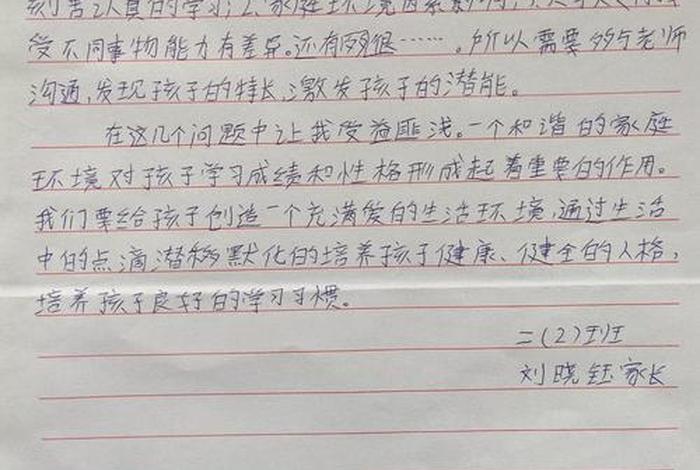 刻苦认真的学习;2.家庭环境因素影响
受不同事物能力有差异。还有……。所以需要多与老师
沟通,发现孩子的特长,激发孩子的潜能。
在这几个问题中让我受益匪浅。一个和谐的家庭
环境对孩子学习成绩和性格形成起着重要的作用。
我们要给孩子创造一个充满爱的生活环境,通过生活
中的点滴潜移默化的培养孩子健康、健全的人格,
培养孩子良好的学习习惯。
二(2)班
刘晓钰家长